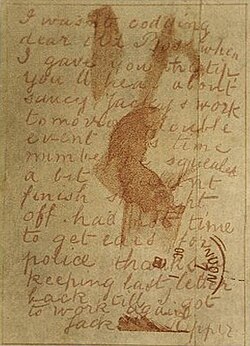 I was not codding
dear old Boss when
I gave you the tip
you'll hear about
saucy Jackys work
tomorrow double
event this time
number squealed
a bit
finish
off. had time
to get ears for
police thanks
keeping last letter
back till I got
to work again.
Jack